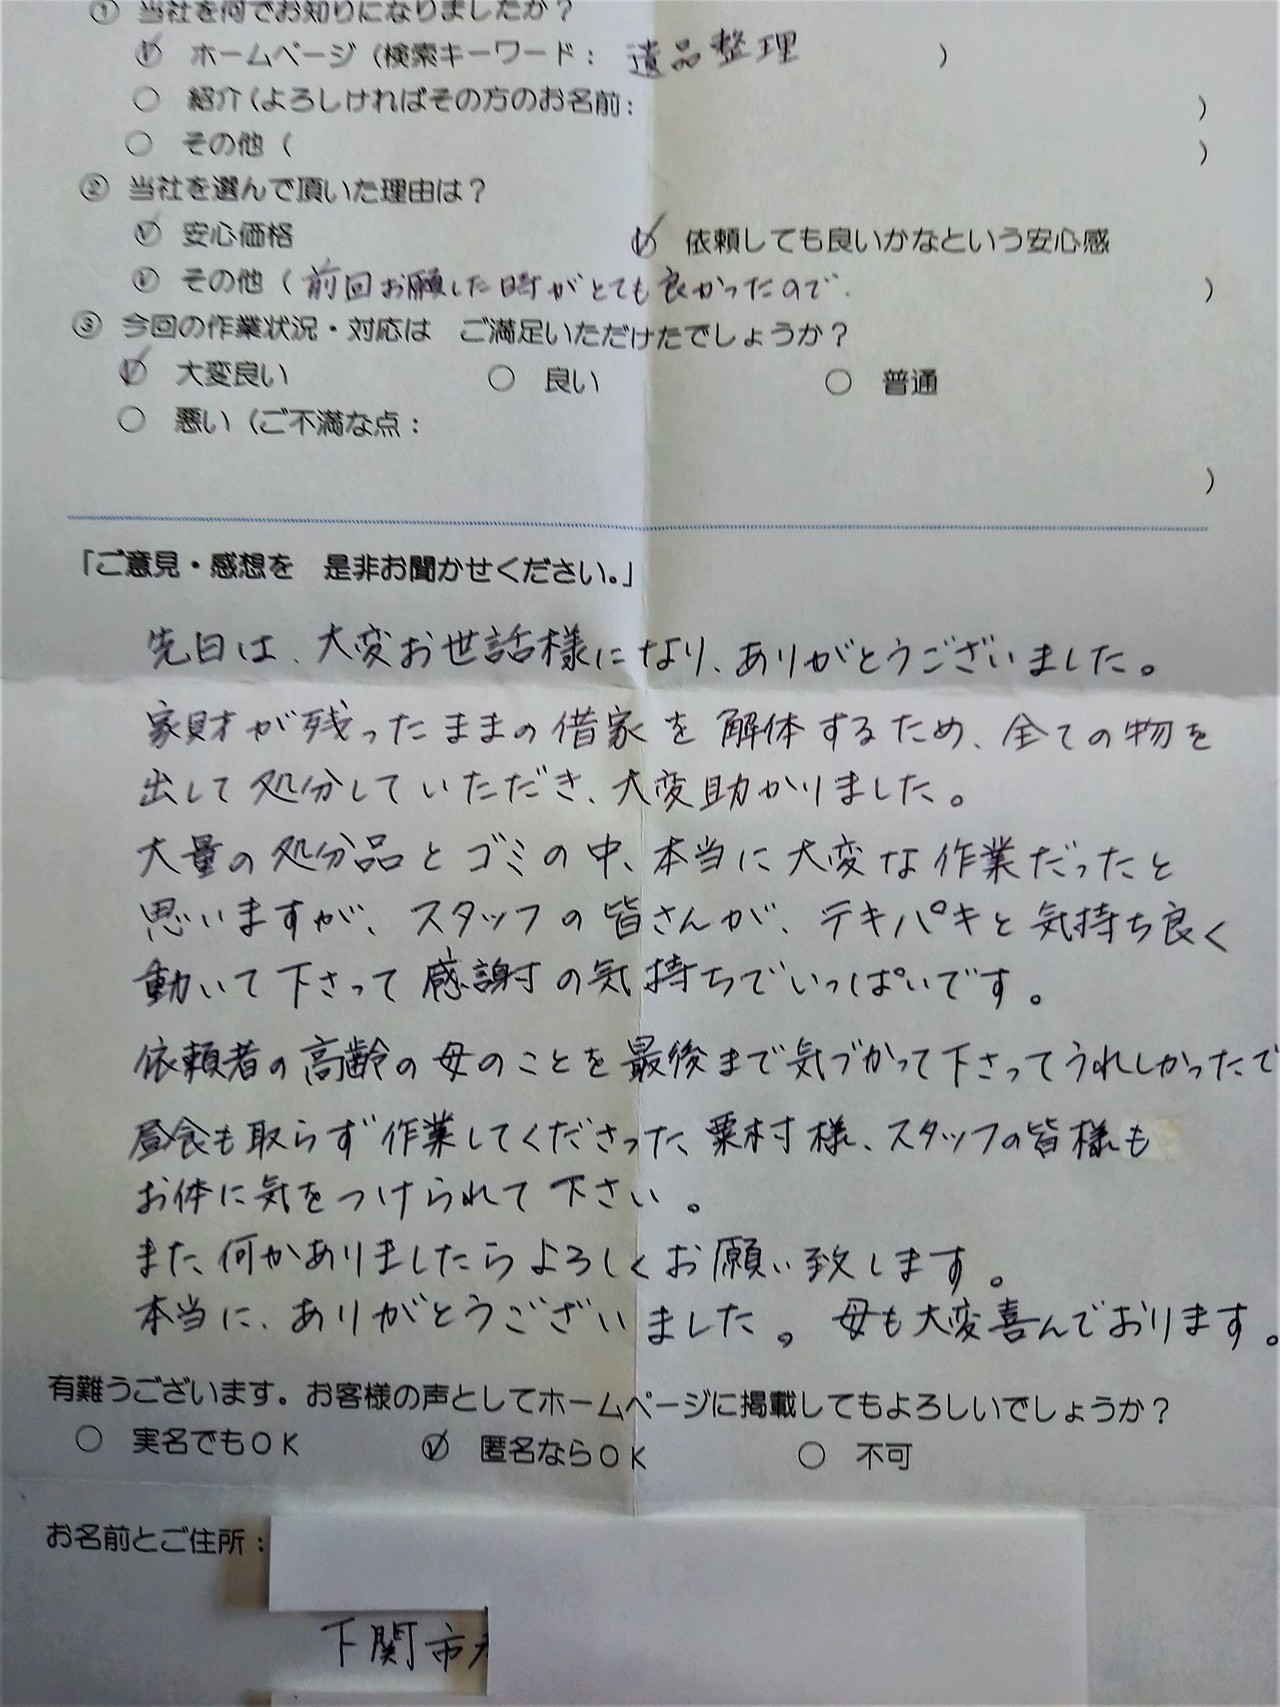 ① 当社を何でお知りになりましたか？
ホームページ（検索キーワード： 遺品整理 ）
○ 紹介（よろしければその方のお名前： ）
○ その他（ ）
② 当社を選んで頂いた理由は？
安心価格 依頼しても良いかなという安心感
その他（前回お願した時がとても良かったので. ）
③ 今回の作業状況・対応は　ご満足いただけたでしょうか？
大変良い ○ 良い ○ 普通
○ 悪い（ご不満な点：
）
「ご意見・感想を　是非お聞かせください。」
先日は、大変お世話様になり、ありがとうございました。
家財が残ったままの借家を解体するため、全ての物を
出して処分していただき、大変助かりました。
大量の処分品とゴミの中、本当に大変な作業だったと
思いますが、スタッフの皆さんが、テキパキと気持ち良く
動いて下さって感謝の気持ちでいっぱいです。
依頼者の高齢の母のことを最後まで気づかって下さってうれしかったで
昼食も取らず作業してくださった、粟村様、スタッフの皆様も
お体に気をつけられて下さい。
また、何かありましたらよろしくお願い致します。
本当に、ありがとうございました。母も大変喜んでおります。
有難うございます。お客様の声としてホームページに掲載してもよろしいでしょうか？
○ 実名でもＯＫ 匿名ならＯＫ ○ 不可
お名前とご住所：
下関市